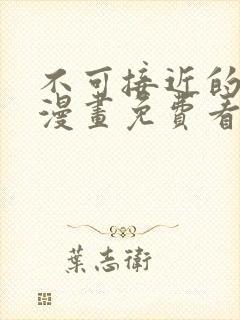 不可接近的
漫畫免費看
葉志衛